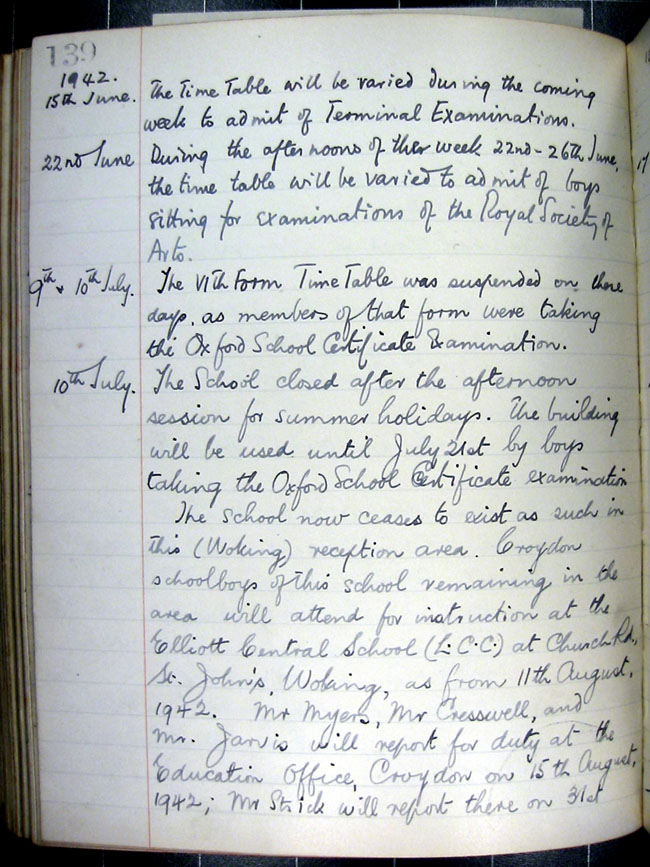 139
1942.
15th June. The Time Table will be varied during the coming
week to admit of Terminal Examinations.
22nd June During the afternoons of this week 22nd-26th June,
the time table will be varied to admit of boys
sitting for examinations of the Royal Society of
Arts.
9th & 10th July. The VIth Form Time Table was suspended on these
days, as members of that form were taking
the Oxford School Certificate Examination.
10th July. The School closed after the afternoon
session for summer holidays. The building
will be used until July 21st by boys
taking the Oxford School Certificate examination
The School now ceases to exist as such in
this (Woking) reception area. Croydon
schoolboys of this school remaining in the
area will attend for instruction at the
Elliott Central School (L.C.C.) at Church Rd.,
St. John's, Woking, as from 11th August,
1942. Mr Myers, Mr Cresswell, and
Mr. Jarvis will report for duty at the
Education Office, Croydon on 15th August,
1942; Mr Strick will report there on 31st